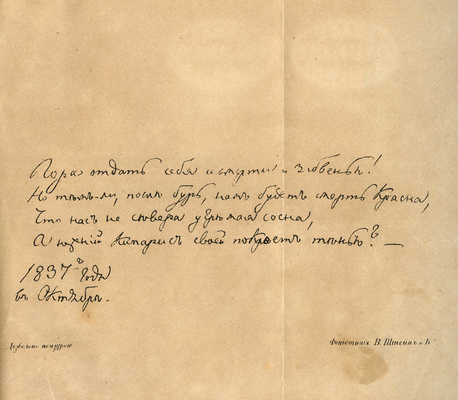 Пора отдать себя и смерти и забвенью!
Но тѣмъ-ли, послѣ бурь, намъ будетъ смерть красна,
Что насъ не сѣвера угрюмая сосна,
А южный кипарисъ своей покроетъ тѣнью? —
1837 года
въ Октябрѣ.
Дозволено цензурою
Фототипія В. Штейнъ и К°